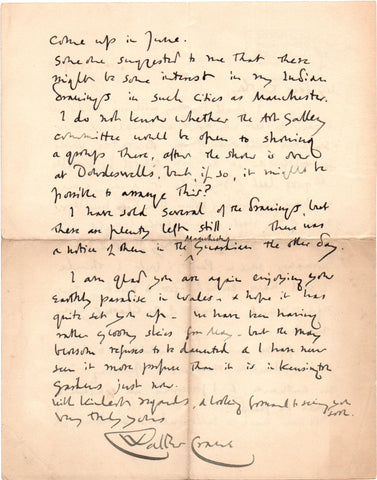 come up in June.
Someone suggested to me that there
might be some interest in my Indian
drawings in such cities as Manchester.
I do not know whether the Art Gallery
committee would be open to showing
a group there, after the show is over
at Dowdeswells, but, if so, it might be
possible to arrange this?
I have sold several of the drawings, but
there are plenty left still. There was
a notice of them in the Manchester Guardian the other day.
I am glad you are again enjoying your
Earthly paradise in Wales & hope it has
quite set you up – We have been having
rather gloomy skies for May – but the may
blossom refuses to be daunted & I have never
seen it more profuse than it is in Kensington
Gardens just now.
With kindest regards, & looking forward to seeing you soon.
Very truly yours
Walter Crane